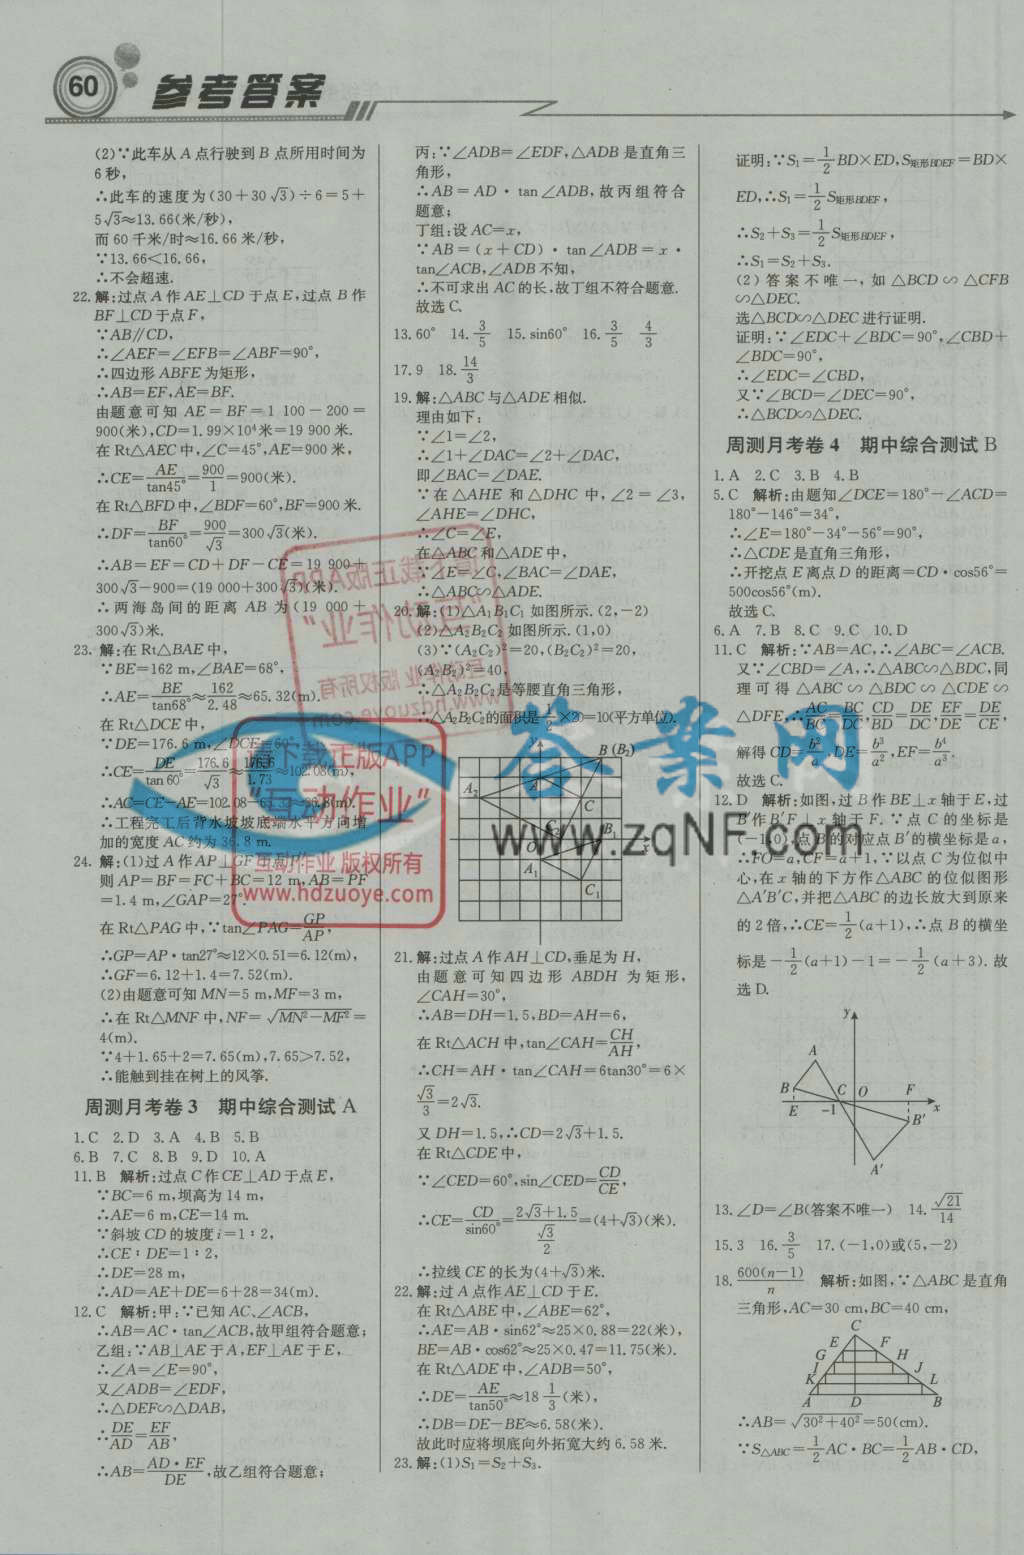 60 参考答案
(2)∵此车从A点行驶到B点所用时间为
6秒，
∴此车的速度为(30+30√3)÷6=5+
5√3≈13.66(米/秒)，
而60千米/时≈16.66米/秒，
∵13.66<16.66，
∴不会超速.
22.解:过点A作AE⊥CD于点E,过点B作
BF⊥CD于点F，
∵AB∥CD，
∴∠AEF=∠EFB=∠ABF=90°，
∴四边形ABFE为矩形，
∴AB=EF,AE=BF.
由题意可知AE=BF=1 100-200=
900(米),CD=1.99×10⁴米=19 900米.
在Rt△AEC中,∠C=45°,AE=900米，
∴CE=AE/tan45°=900/1=900(米).
在Rt△BFD中,∠BDF=60°,BF=900米.
∴DF=BF/tan60°=900/√3=300√3(米).
∴AB=EF=CD+DF-CE=19 900+
300√3-900=(19 000+300√3)(米).
∴两海岛间的距离AB为(19 000+
300√3)米.
23.解:在Rt△BAE中，
∵BE=162 m,∠BAE=68°，
∴AE=BE/tan68°≈162/2.48≈65.32(m).
在Rt△DCE中，
∵DE=176.6 m,∠DCE=60°
∴CE=DE/tan 60°=176.6/√3≈176.6/1.73≈102.08(m)，
∴AC=CE-AE=102.08-65.32≈36.8(m).
∴工程完工后背水坡坡底端水平方向增
加的宽度AC约为36.8 m.
24.解:(1)过A作AP⊥GF于点P
则AP=BF=FC+BC=12 m,AB=PF
=1.4 m,∠GAP=27°
在Rt△PAG中,∵tan∠PAG=GP/AP，
∴GP=AP·tan27°≈12×0.51=6.12(m)，
∴GF=6.12+1.4=7.52(m).
(2)由题意可知MN=5 m,MF=3 m，
∴在Rt△MNF中,NF=√(MN²-MF²)=
4(m).
∵4+1.65+2=7.65(m),7.65>7.52，
∴能触到挂在树上的风筝.
周测月考卷3 期中综合测试A
1.C 2.D 3.A 4.B 5.B
6.B 7.C 8.B 9.D 10.A
11.B 解析:过点C作CE⊥AD于点E，
∵BC=6 m,坝高为14 m，
∴AE=6 m,CE=14 m.
∵斜坡CD的坡度i=1∶2，
∴CE∶DE=1∶2，
∴DE=28 m，
∴AD=AE+DE=6+28=34(m).
12.C 解析:甲:∵已知AC、∠ACB，
∴AB=AC·tan∠ACB,故甲组符合题意；
乙组:∵AB⊥AE于A,EF⊥AE于E，
∴∠A=∠E=90°，
又∠ADB=∠EDF，
∴△DEF∽△DAB，
∴DE/AD=EF/AB，
∴AB=AD·EF/DE,故乙组符合题意；
丙:∵∠ADB=∠EDF,△ADB是直角三
角形，
∴AB=AD·tan∠ADB,故丙组符合
题意；
丁组:设AC=x，
∵AB=(x+CD)·tan∠ADB=x·
tan∠ACB,∠ADB不知，
∴不可求出AC的长,故丁组不符合题意.
故选C.
13.60° 14.3/5 15.sin60° 16.3/5 4/3
17.9 18.14/3
19.解:△ABC与△ADE相似.
理由如下:
∵∠1=∠2，
∴∠1+∠DAC=∠2+∠DAC，
即∠BAC=∠DAE.
∵在△AHE和△DHC中,∠2=∠3，
∠AHE=∠DHC，
∴∠C=∠E，
在△ABC和△ADE中，
∵∠E=∠C,∠BAC=∠DAE，
∴△ABC∽△ADE.
20.解:(1)△A₁B₁C₁如图所示.(2,-2)
(2)△A₂B₂C₂如图所示.(1,0)
(3)∵(A₂C₂)²=20,(B₂C₂)²=20，
(A₂B₂)²=40，
∴△A₂B₂C₂是等腰直角三角形，
∴△A₂B₂C₂的面积是1/2×20=10(平方单位).
y B (B₂)
A₂ A C
C₂ O B₁ x
A₁ C₁
21.解:过点A作AH⊥CD,垂足为H，
由题意可知四边形ABDH为矩形，
∠CAH=30°，
∴AB=DH=1.5,BD=AH=6，
在Rt△ACH中,tan∠CAH=CH/AH，
∴CH=AH·tan∠CAH=6tan30°=6×
√3/3=2√3.
又DH=1.5,∴CD=2√3+1.5.
在Rt△CDE中，
∵∠CED=60°,sin∠CED=CD/CE，
∴CE=CD/sin60°=(2√3+1.5)/(√3/2)=(4+√3)(米).
∴拉线CE的长为(4+√3)米.
22.解:过点A作AE⊥CD于E.
在Rt△ABE中,∠ABE=62°，
∴AE=AB·sin62°≈25×0.88=22(米)，
BE=AB·cos62°≈25×0.47=11.75(米).
在Rt△ADE中,∠ADB=50°，
∴DE=AE/tan50°≈18 1/3(米)，
∴DB=DE-BE≈6.58(米).
故此时应将坝底向外拓宽大约6.58米.
23.解:(1)S₁=S₂+S₃.
证明:∵S₁=1/2BD×ED,S矩形BDEF=BD×
ED,∴S₁=1/2S矩形BDEF，
∴S₂+S₃=1/2S矩形BDEF，
∴S₁=S₂+S₃.
(2)答案不唯一,如△BCD∽△CFB
∽△DEC.
选△BCD∽△DEC进行证明.
证明:∵∠EDC+∠BDC=90°,∠CBD+
∠BDC=90°，
∴∠EDC=∠CBD，
又∵∠BCD=∠DEC=90°，
∴△BCD∽△DEC.
周测月考卷4 期中综合测试B
1.A 2.C 3.B 4.B
5.C 解析:由题知∠DCE=180°-∠ACD=
180°-146°=34°，
∴∠E=180°-34°-56°=90°，
∴△CDE是直角三角形，
∴开挖点E离点D的距离=CD·cos56°=
500cos56°(m).
故选C.
6.A 7.B 8.C 9.C 10.D
11.C 解析:∵AB=AC,∴∠ABC=∠ACB.
又∵∠CBD=∠A,∴△ABC∽△BDC,同
理可得△ABC∽△BDC∽△CDE∽
△DFE,∴AC/BC=BC/DC,CD/BD=DE/DC,EF/DE=DE/CE，
解得CD=b²/a,DE=b³/a²,EF=b⁴/a³.
故选C.
12.D 解析:如图,过B作BE⊥x轴于E,过
B′作B′F⊥x轴于F.∵点C的坐标是
(-1,0),点B的对应点B′的横坐标是a，
∴FO=a,CF=a+1,∵以点C为位似中
心,在x轴的下方作△ABC的位似图形
△A′B′C,并把△ABC的边长放大到原来
的2倍,∴CE=1/2(a+1),∴点B的横坐
标是-1/2(a+1)-1=-1/2(a+3).故
选D.
y
A
B C O F
E -1 x
B′
A′
13.∠D=∠B(答案不唯一) 14.√21/14
15.3 16.3/5 17.(-1,0)或(5,-2)
18.600(n-1)/n 解析:如图,∵△ABC是直角
三角形,AC=30 cm,BC=40 cm，
C
E F
G H
I J
K L
A D B
∴AB=√(30²+40²)=50(cm).
∵S△ABC=1/2AC·BC=1/2AB·CD，
请下载正版APP
“互动作业”
互动作业 版权所有
www.hdzuoye.com
请下载正版APP
“互动作业”
互动作业 版权所有
www.hdzuoye.com
答案网
www.zqNF.com